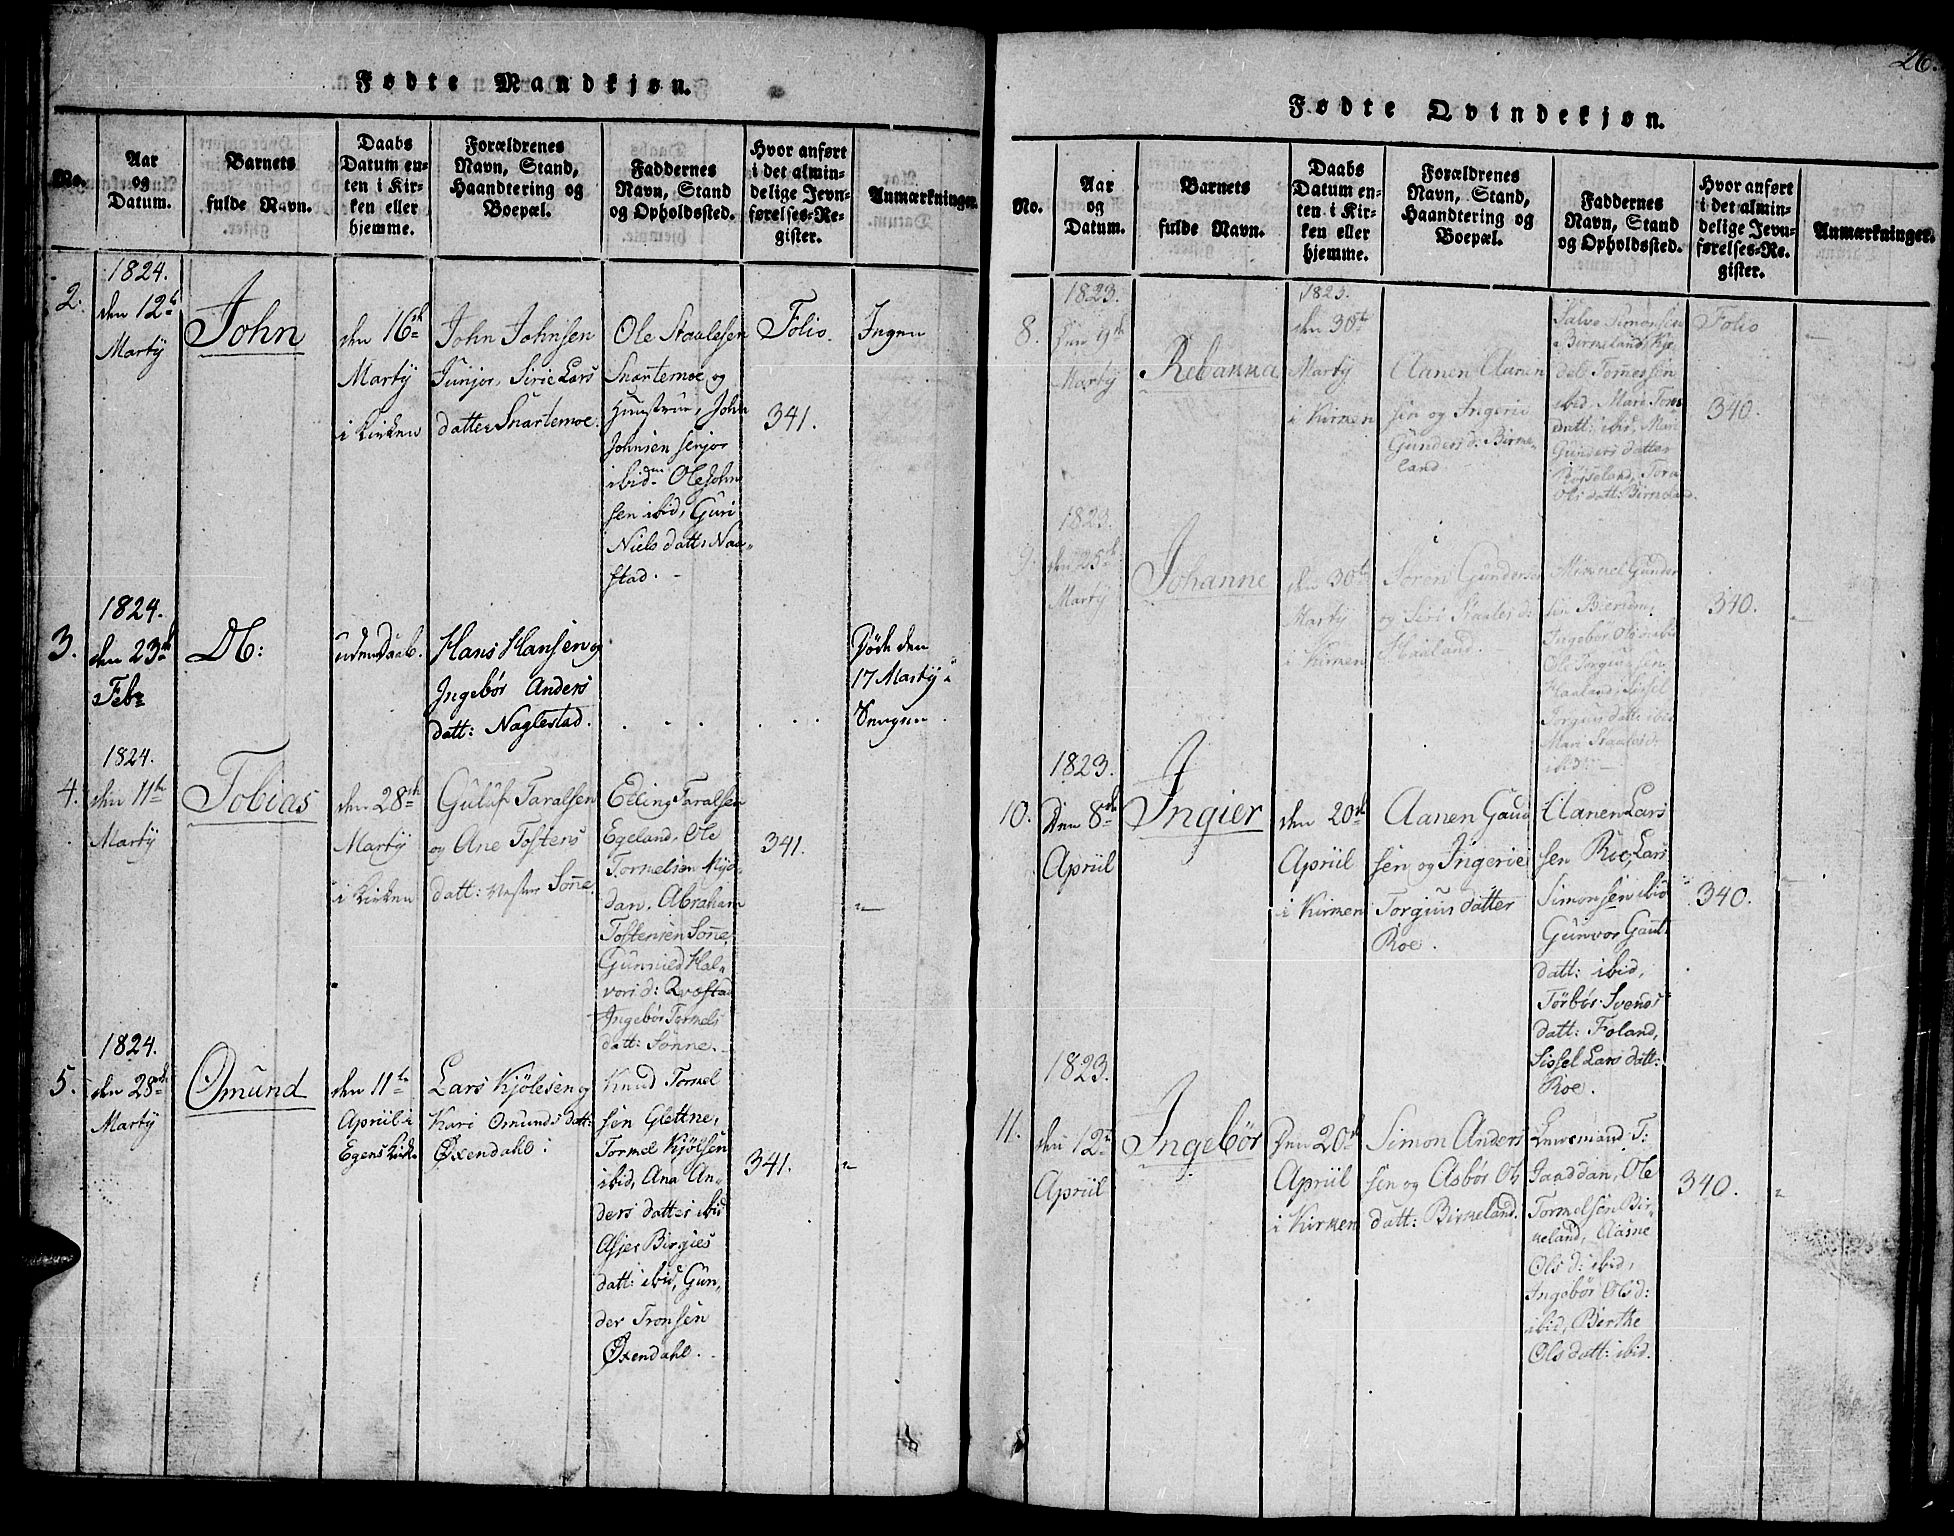 Fødte Mandkjøn.
No.
Aar
og
Datum.
Barnets
fulde Navn.
Daabs
Datum en-
ten i Kir-
ken eller
hjemme.
Forældrenes
Navn, Stand,
Haandtering og
Boepæl.
Faddernes
Navn, Stand
og Opholdssted.
Hvor anført
i det almin-
delige Jevn-
førelses-Re-
gister.
Anmærkninger.
2.
1824.
den 12te
Martÿ
John
den 16de
Martÿ
i Kirken
John Johnsen
Junjor, Sirie Lars
datter Snartemoe.
Ole Staalesen
Snartemoe, og
Hunstrue, John
Johnsen senjor
ibidm Ole John
sen ibid, Guri
Niels datt: Naa-
stad.
Folio.
341.
Ingen
3.
1824.
den 23de
Feb
Db:
uden Daab.
Hans Hansen og
Ingebør Anders
datt: Naglestad.
Døde den
17 Martÿ
4.
1824.
den 11te
Martÿ
Tobias
den 28de
Martÿ
i Kirken
Guluf Taralsen
og Ane Tostens
datt: Vester Sønne.
Edling Taralsen
Egeland, Ole
Tormelsen
dan, Abraham
Tostensen Sønne,
Gunnild Hal-
vors d: Qvæstad
Ingebør Tormels
datt: Sønne.
341.
5.
1824.
den 28de
Martÿ
Omund
den 11te
Apriil i
Egens Kirk
Lars Kjølesen og
Kari Omunds datt:
Øxendahl
Knud Tormel
sen Glettne,
Tormel Kjølsen
ibid, Ana An-
ders datter ibid
Asjer Birgies
datt: ibid, Gun-
der Tronsen
Øxendahl.
341.
26.
Fødte Qvindekjøn.
No.
Aar
og
Datum.
Barnets
fulde Navn.
Daabs
Datum en-
ten i Kir-
ken eller
hjemme.
Forældrenes
Navn, Stand,
Haandtering og
Boepæl.
Faddernes
Navn, Stand
og Opholdssted.
Hvor anført
i det almin-
delige Jevn-
førelses-Re-
gister.
Anmærkninger.
8.
1823.
den 9de
Martÿ
Rebakka
1823.
den 30te
Martÿ
i Kirken
Aanen Aanen
sen og Ingerie
Gunders d: Birke-
land
Salve Simonsen
Birkeland, Kje
del Tormelsen
ibid. Mari Torm
datt: ibid, Mari
Gunders datter
Røyseland, Tora
Ols datt: Birkeland.
Folio
340.
9.
1823.
den 25de
Martÿ
Johanne
den 30te
Martÿ
i Kirken
Søren Gundersen
og Siri Staales d:
Haaland.
Mikkel Gunder
sen Bierum,
Ingebør Ols d: ibid
Ole Torgiussen
Haaland, Sissel
Torgius datt: ibid
Mari Staales d:
ibid
340.
10.
1823.
Den 8de
Apriil
Ingier
den 20de
Apriil
i Kirken
Aanen Gaud
sen og Ingerie
Torgius datter
Roe.
Aanen Lars
sen Roe, Lars
Simonsen ibid
Gunvor Gaut
datt: ibid,
Torbør Svends
datt: Foland,
Sissel Lars datt:
Roe.
340.
11.
1823.
den 12te
Apriil
Ingebør
Den 20de
Apriil
i Kirken
Simon Anders
sen og Asbør Ols
datt: Birkeland.
Lensmand T:
Jaaddan, Ole
Tormelsen Bir-
keland, Aasne
Ols d: ibid,
Ingebør Ols d:
ibid, Berthe
Ols datt: ibid.
340.